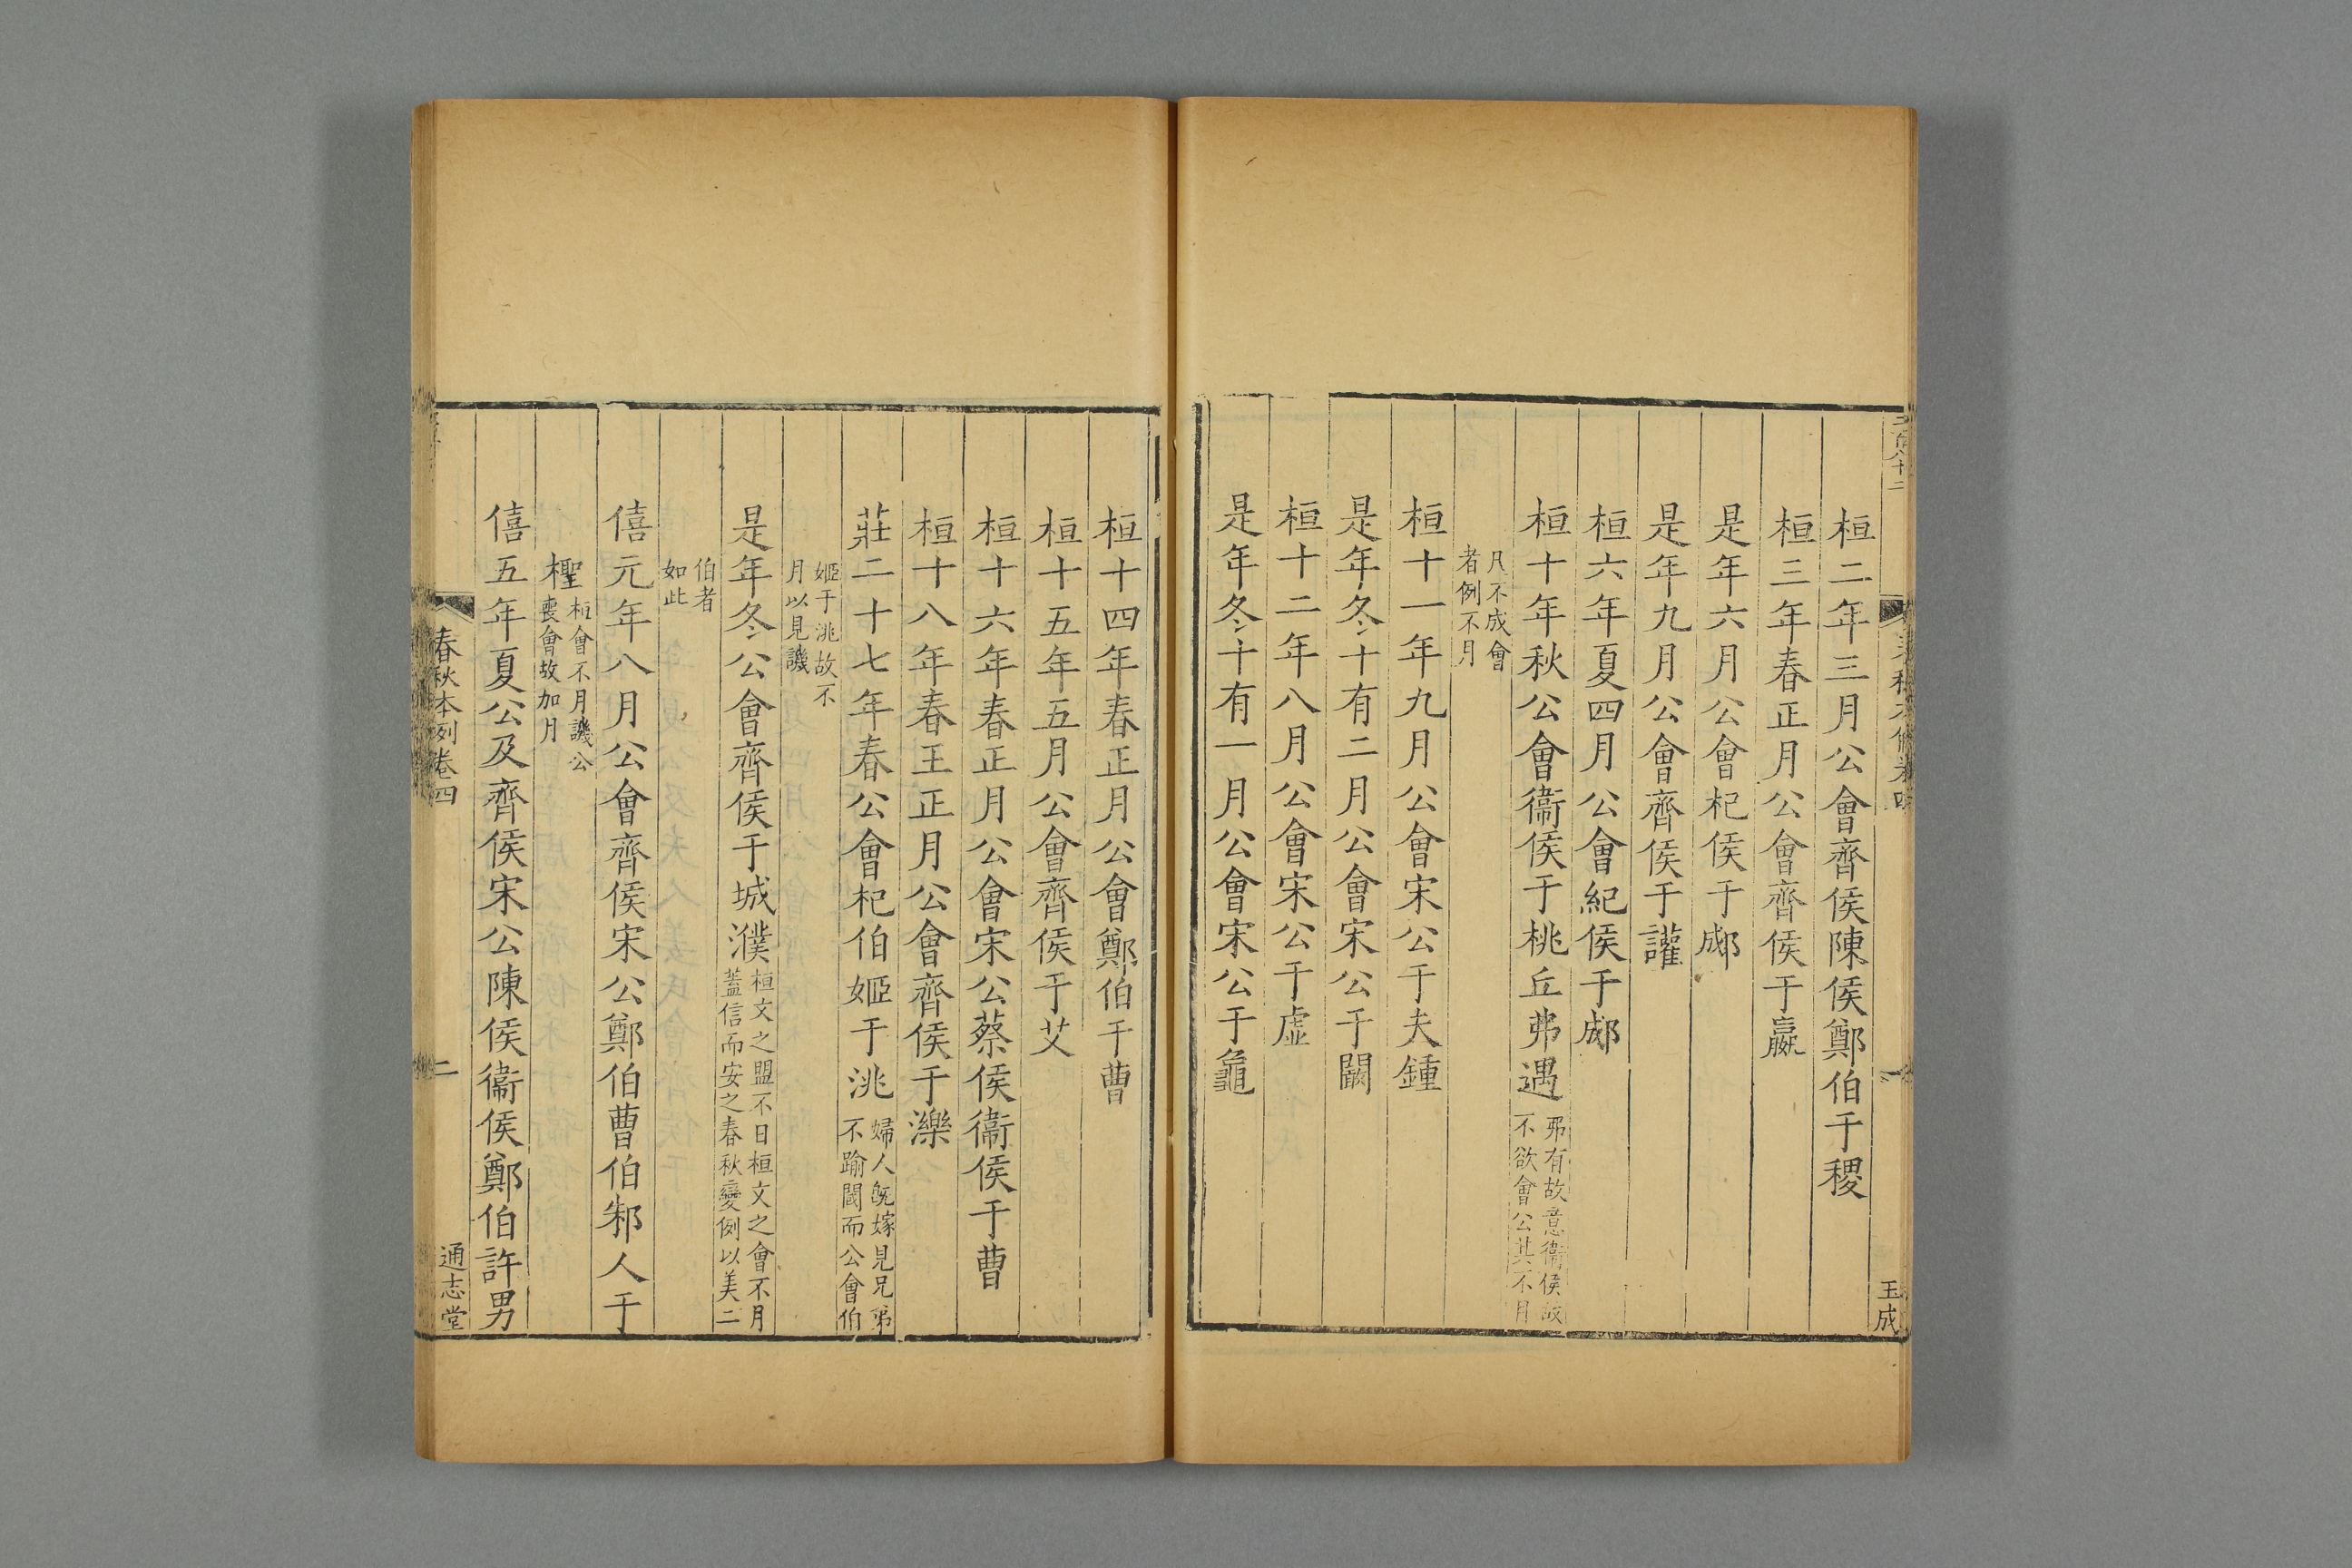 桓二年三月公會齊侯陳侯鄭伯于稷
桓三年春正月公會齊侯于嬴
是年六月公會杞侯于郕
是年九月公會齊侯于讙
桓六年夏四月公會紀侯于郕
桓十年秋公會衞侯于桃丘弗遇
弗有故意衞侯故
不欲會公其不月
凡不成會
者例不月
桓十一年九月公會宋公于夫鍾
是年冬十有二月公會宋公于闞
桓十二年八月公會宋公于虛
是年冬十有一月公會宋公于龜
玉成
桓十四年春正月公會鄭伯于曹
桓十五年五月公會齊侯于艾
桓十六年春正月公會宋公蔡侯衞侯于曹
桓十八年春王正月公會齊侯于濼
莊二十七年春公會杞伯姬于洮
婦人既嫁見兄弟
不踰閾而公會伯
姬于洮故不
月以見譏
是年冬公會齊侯于城濮
桓文之盟不日桓文之會不月
蓋信而安之春秋變例以美二
伯者
如此
僖元年八月公會齊侯宋公鄭伯曹伯邾人于
檉
桓會不月譏公
喪會故加月
僖五年夏公及齊侯宋公陳侯衞侯鄭伯許男
春秋本例卷四
二
通志堂